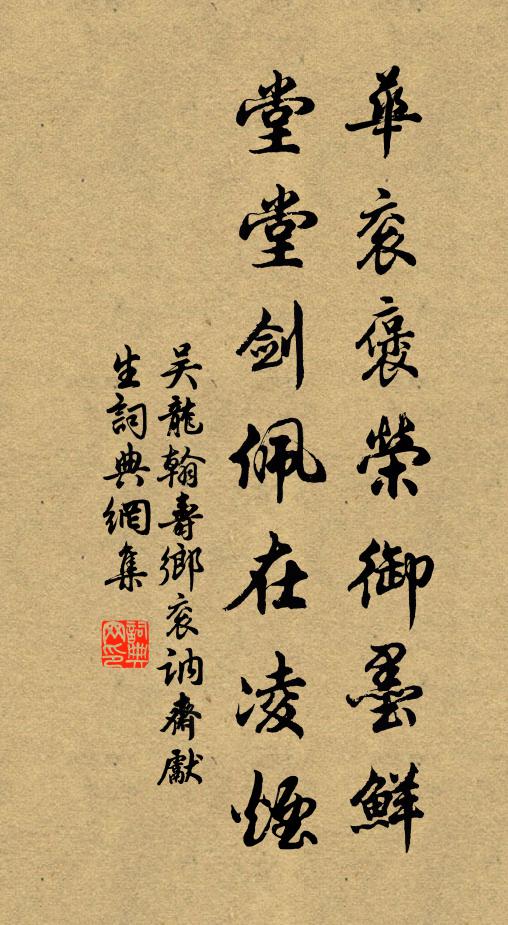 華衮褒榮御墨鮮
堂堂劍佩在凌煙
吴龍翰壽鄉衮訥齋獻
生詞典網集
詞典网印